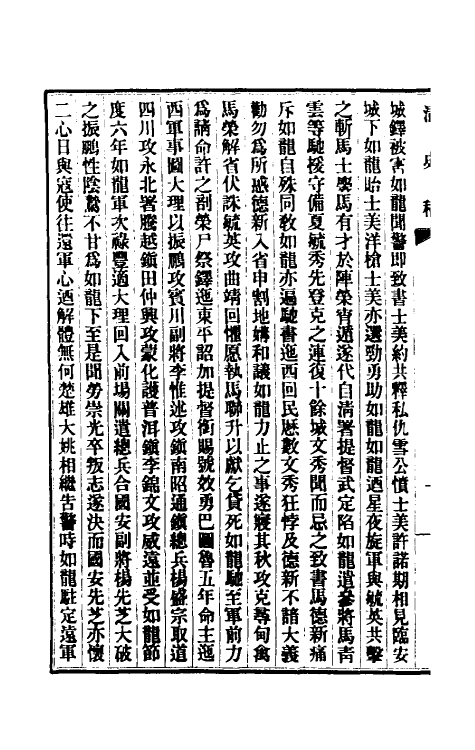 清史稿
城鐸被害如龍聞警卽致書士美約共釋私仇雪公憤士美許諾期相見臨安
城下如龍貽士美洋槍士美亦選勁勇助如龍如龍迺星夜旋軍與毓英共擊
之斬馬士麐馬有才於陣榮宵遁遂代自清署提督武定陷如龍遣參將馬青
雲等馳援守備夏毓秀先登克之連復十餘城文秀聞而忌之致書馬德新痛
斥如龍自殊同敎如龍亦遍馳書迤西回民歷數文秀狂悖及德新不諳大義
勸勿爲所惑德新入省申割地媾和議如龍力止之事遂寢其秋攻克尋甸禽
馬榮解省伏誅毓英攻曲靖回懼愿執馬聯升以獻乞貸死如龍馳至軍前力
爲請命許之剖榮尸祭鐸迤東平詔加提督銜賜號效勇巴圖魯五年命主迤
西軍事圖大理以振鵬攻賓川副將李惟述攻鎭南昭通鎭總兵楊盛宗取道
四川攻永北署騰越鎭田仲興攻蒙化護普洱鎭李錦文攻威遠並受如龍節
度六年如龍軍次祿豐適大理回入前場關遣總兵合國安副將楊先芝大破
之振鵬性陰鷙不甘爲如龍下至是聞勞崇光卒叛志遂決而國安先芝亦懷
二心日與寇使往還軍心迺解體無何楚雄大姚相繼告警時如龍駐定遠軍